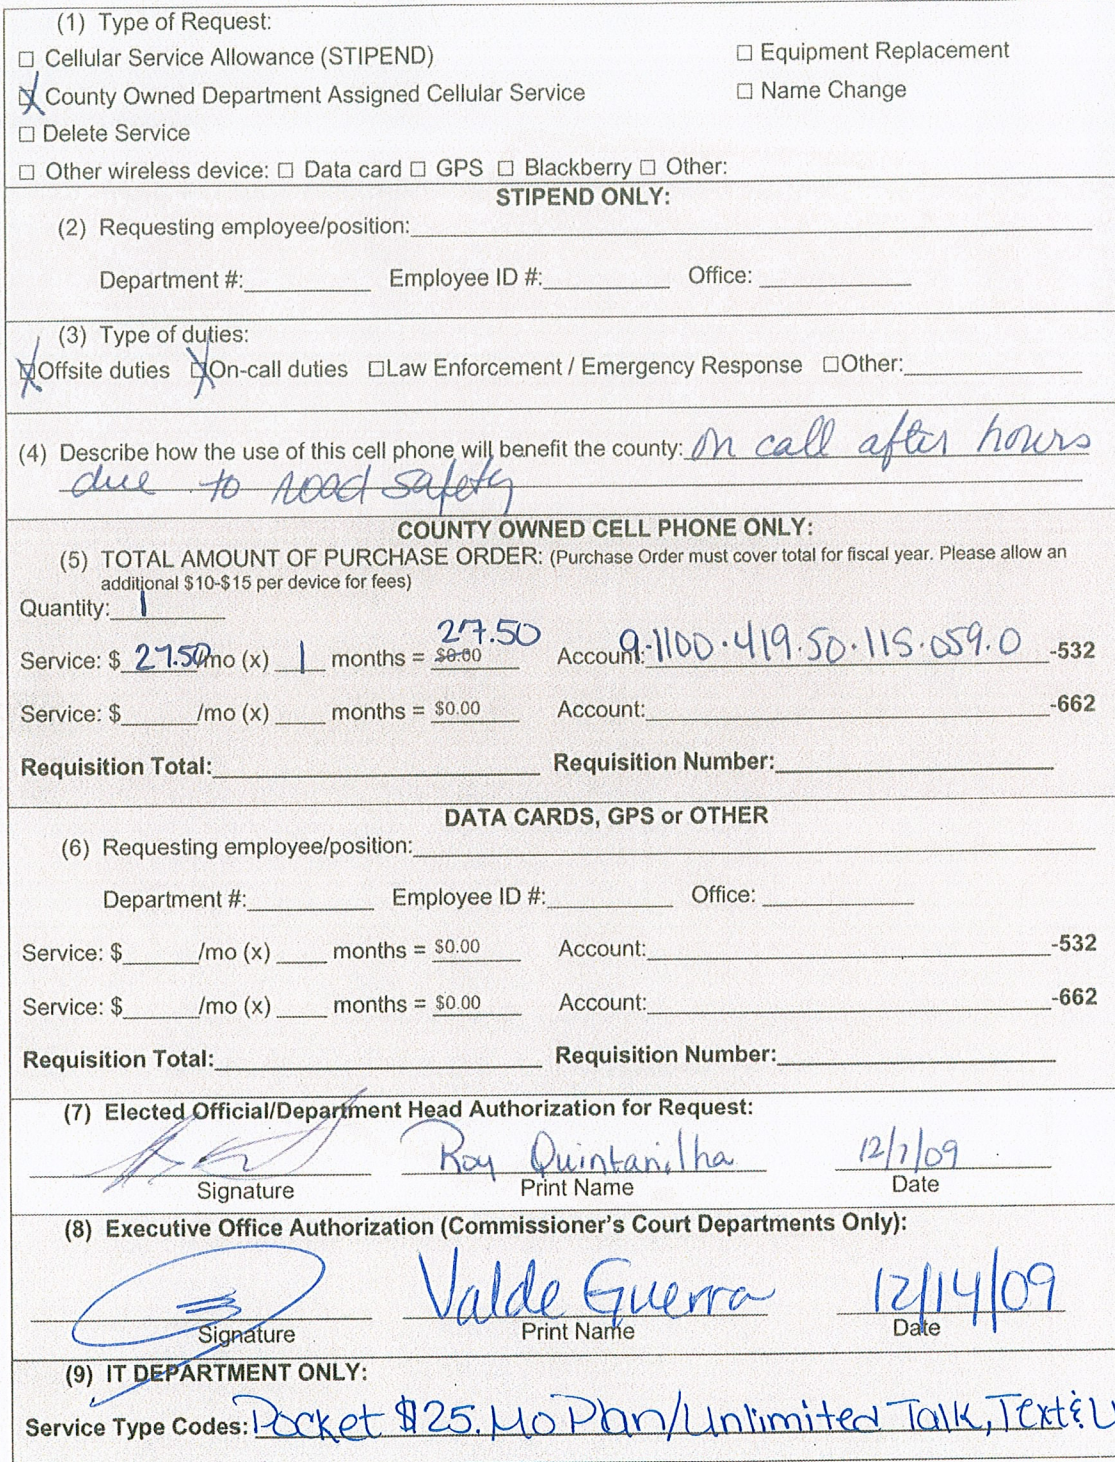 (1) Type of Request:
☐ Cellular Service Allowance (STIPEND) ☐ Equipment Replacement
☒ County Owned Department Assigned Cellular Service ☐ Name Change
☐ Delete Service
☐ Other wireless device: ☐ Data card ☐ GPS ☐ Blackberry ☐ Other:
STIPEND ONLY:
(2) Requesting employee/position:
Department #: Employee ID #: Office:
(3) Type of duties:
☒ Offsite duties ☒ On-call duties ☐ Law Enforcement / Emergency Response ☐ Other:
(4) Describe how the use of this cell phone will benefit the county: On call after hours
due to road safety
COUNTY OWNED CELL PHONE ONLY:
(5) TOTAL AMOUNT OF PURCHASE ORDER: (Purchase Order must cover total for fiscal year. Please allow an
additional $10-$15 per device for fees)
Quantity: 1
27.50
Service: $ 27.50/mo (x) 1 months = $0.00 Account: 9-1100.419.50.115.059.0 -532
Service: $ /mo (x) months = $0.00 Account: -662
Requisition Total: Requisition Number:
DATA CARDS, GPS or OTHER
(6) Requesting employee/position:
Department #: Employee ID #: Office:
Service: $ /mo (x) months = $0.00 Account: -532
Service: $ /mo (x) months = $0.00 Account: -662
Requisition Total: Requisition Number:
(7) Elected Official/Department Head Authorization for Request:
Roy Quintanilha 12/7/09
Signature Print Name Date
(8) Executive Office Authorization (Commissioner's Court Departments Only):
Valde Guerra 12/14/09
Signature Print Name Date
(9) IT DEPARTMENT ONLY:
Service Type Codes: Pocket $25. Mo Plan/Unlimited Talk, Text & U